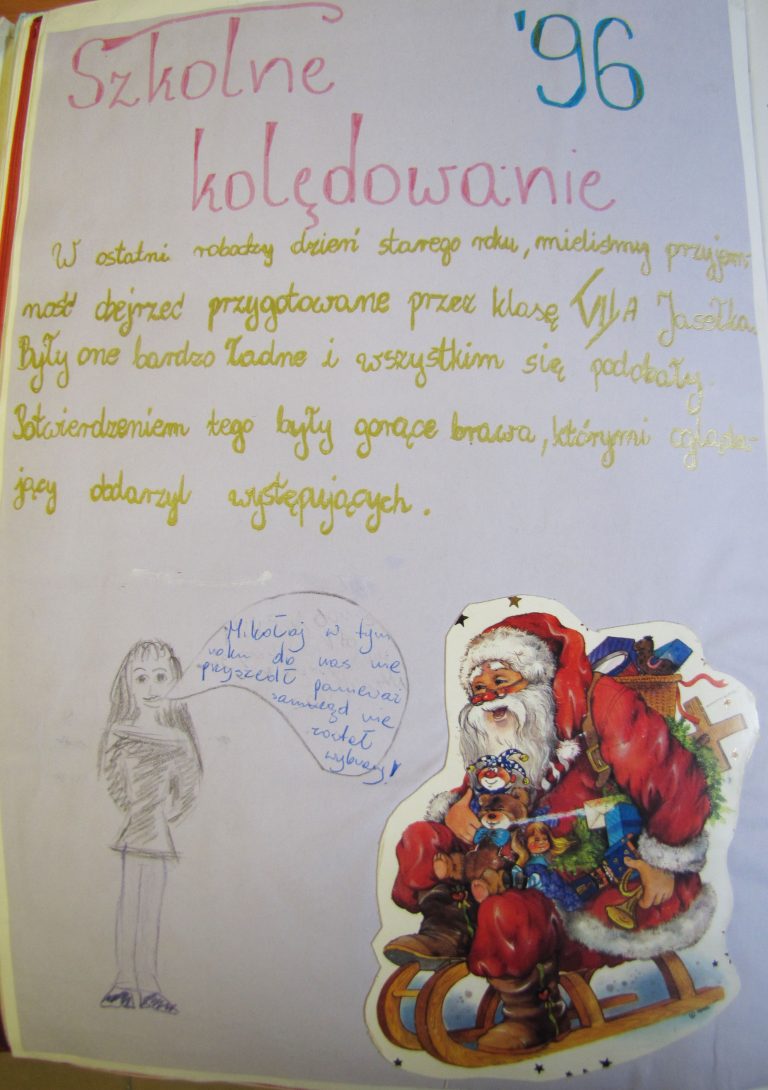 Szkolne '96
kolędowanie
W ostatni roboczy dzień starego roku, mieliśmy przyjem-
ność obejrzeć przygotowane przez klasę VII A Jasełka.
Były one bardzo ładne i wszystkim się podobały.
Potwierdzeniem tego były gorące brawa, którymi ogląda-
jący obdarzyl występujących.
Mikołaj w tym
roku do nas nie
przyszedł ponieważ
samorząd nie
został
wybrany!